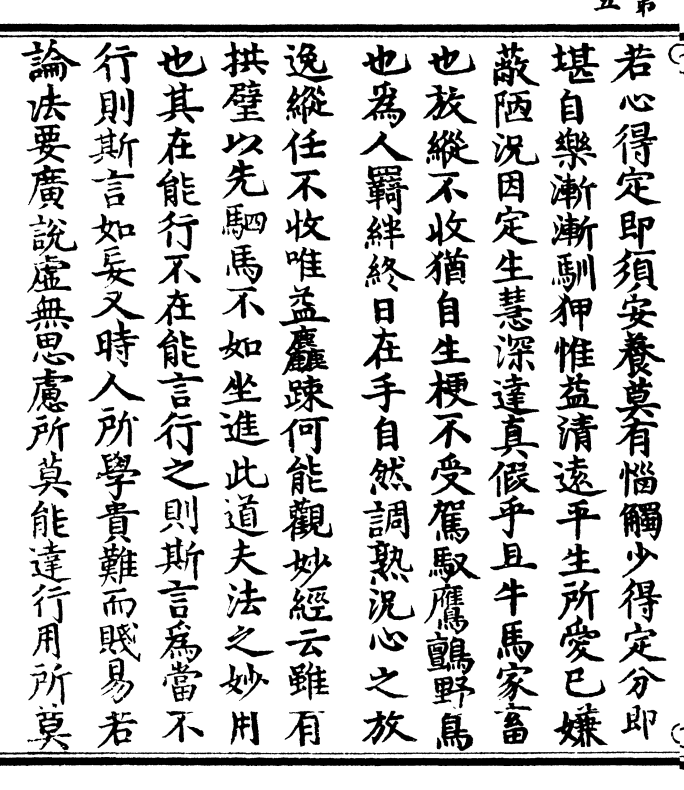 若心得定即須安養莫有惱觸少得定分即
堪自樂漸漸馴狎惟益清遠平生所愛已嫌
蔽陋況因定生慧深達真假乎且牛馬家畜
也放縱不收猶自生梗不受駕馭鷹鸇野鳥
也為人羈絆終日在手自然調熟況心之放
逸縱任不收唯益麤踈何能觀妙經云雖有
拱璧以先駟馬不如坐進此道夫法之妙用
也其在能行不在能言行之則斯言為當不
行則斯言如妄又時人所學貴難而賤易若
論法要廣說虛無思慮所莫能達行用所莫